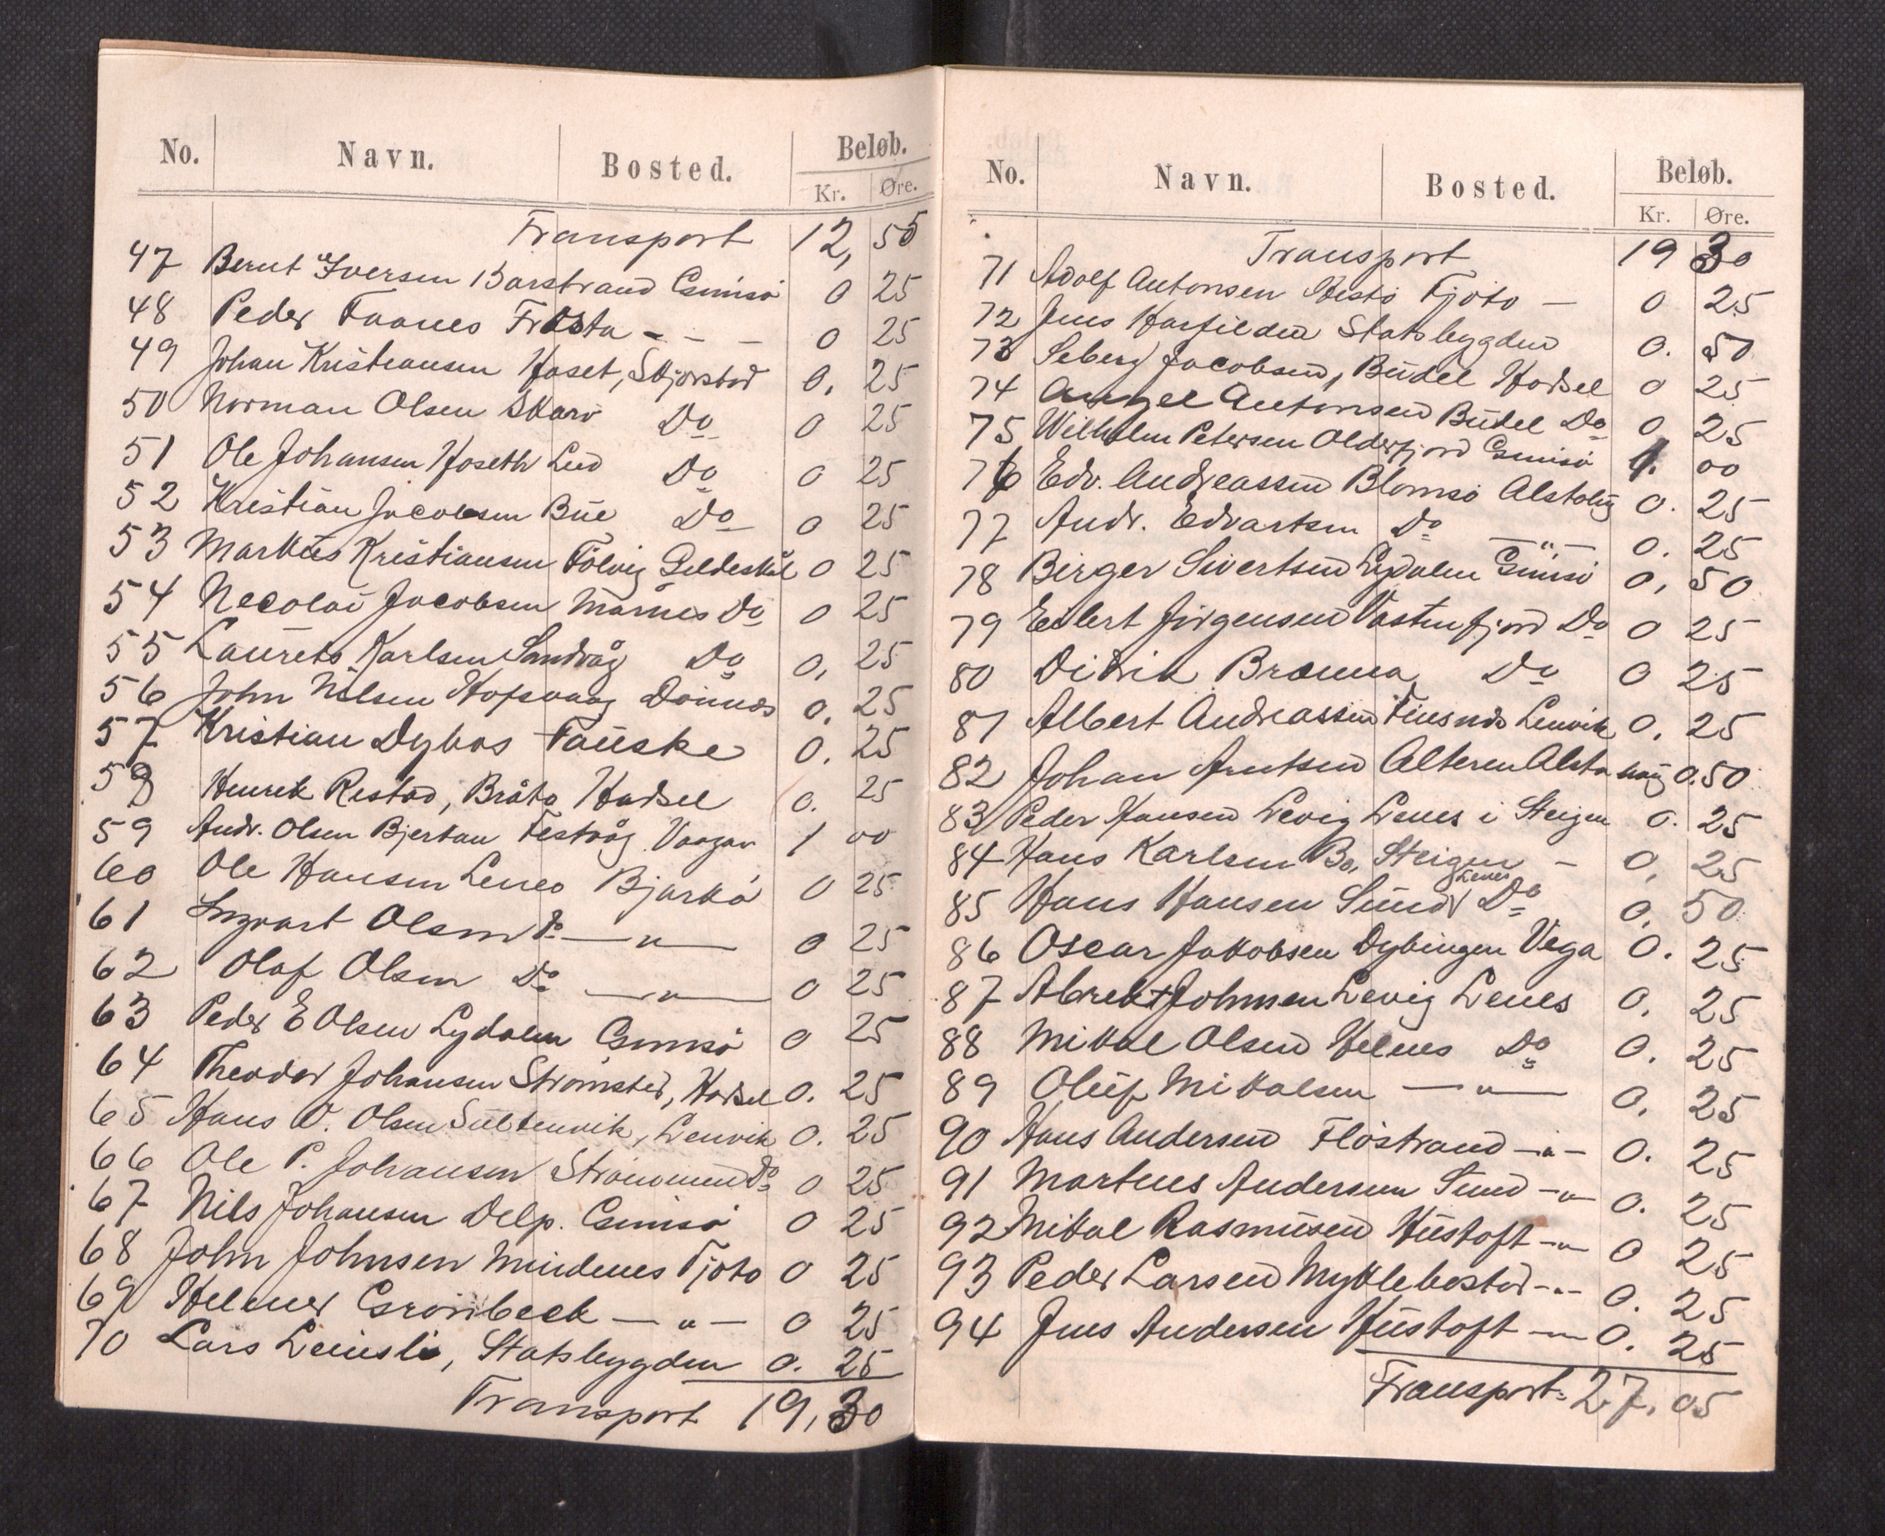 No. Navn. Bosted. Beløb.
Kr. Øre.
Transport 12, 55
47 Bernt Iversen Barstrand Gimsö 0 25
48 Peder Faanes Frosta - - - 0 25
49 Johan Kristiansen Hoset, Skjerstad 0. 25
50 Norman Olsen Skarö Do 0 25
51 Ole Johansen Hoseth Do 0 25
52 Kristian Jacobsen Bue Do 0 25
53 Markus Kristiansen Gildeskål 0 25
54 Necolai Jacobsen Mårnes Do 0 25
55 Laurets Karlsen Sandvåg Do 0, 25
56 John Nilsen Hofsvaag Dönnes 0. 25
57 Kristian Dybos Fauske 0. 25
58 Henrik Restad, Bråto Hadsel 0. 25
59 Andr. Olsen Bjerkan Festvåg Vaagan 1 00
60 Ole Hansen Lenes Bjarkö 0 25
61 Ingvart Olsen Do — " — 0 25
62 Olaf Olsen Do — " — 0 25
63 Peder E Olsen Lydalen Gimsö 0 25
64 Theodor Johansen Strömsted, Hadsel 0. 25
65 Hans O. Olsen Sultenvik, Lenvik 0. 25
66 Ole P. Johansen Strömmen Do 0 25
67 Nils Johansen Delp. Gimsö 0 25
68 John Johnsen Mindenes Tjöto 0 25
69 Helmer Grönbeck — " — 0 25
70 Lars Leinsli, Statsbygden 0. 25
Transport 19, 30
No. Navn. Bosted. Beløb.
Kr. Øre.
Transport 19 30
71 Adolf Antonsen Hestö Tjöto — 0 25
72 Jens Harfilden Statsbygden 0. 50
73 Seberg Jacobsen, Budel Hadsel 0 25
74 Angel Antonsen Budel Do 0 25
75 Wilhelm Petersen Olderfjord Gimsö 1. 00
76 Edv. Andreassen Blomsö Alstahug 0. 25
77 Andr. Edvartsen Do — " — 0. 25
78 Birger Sivertsen Lydalen Gimsö 0, 50
79 Eilert Jörgensen Vastenfjord Do 0 25
80 Didrik Brænna Do 0 25
81 Albert Andreassen Finsnds Lenvik 0. 25
82 Johan Arntsen Alteren Alstahaug 0.50
83 Peder Hansen Levig Lenes i Steigen 0. 25
84 Hans Karlsen Bo, Steigen — 0, 25
85 Hans Hansen Sund Lenes Do 0, 50
86 Oscar Jakobsen Dybingen Vega 0. 25
87 Abrekt Johnsen Levig Lenes 0. 25
88 Mikal Olsen Helnes Do 0. 25
89 Oluf Mikalsen — " — 0. 25
90 Hans Andersen Flöstrand — " — 0. 25
91 Martnus Andersen Sund — " — 0. 25
92 Mikal Rasmusen Hustoft — " — 0 25
93 Peder Larsen Myklebostad — " — 0. 25
94 Jens Andersen Hustoft — " — 0. 25
Transport: 27. 05